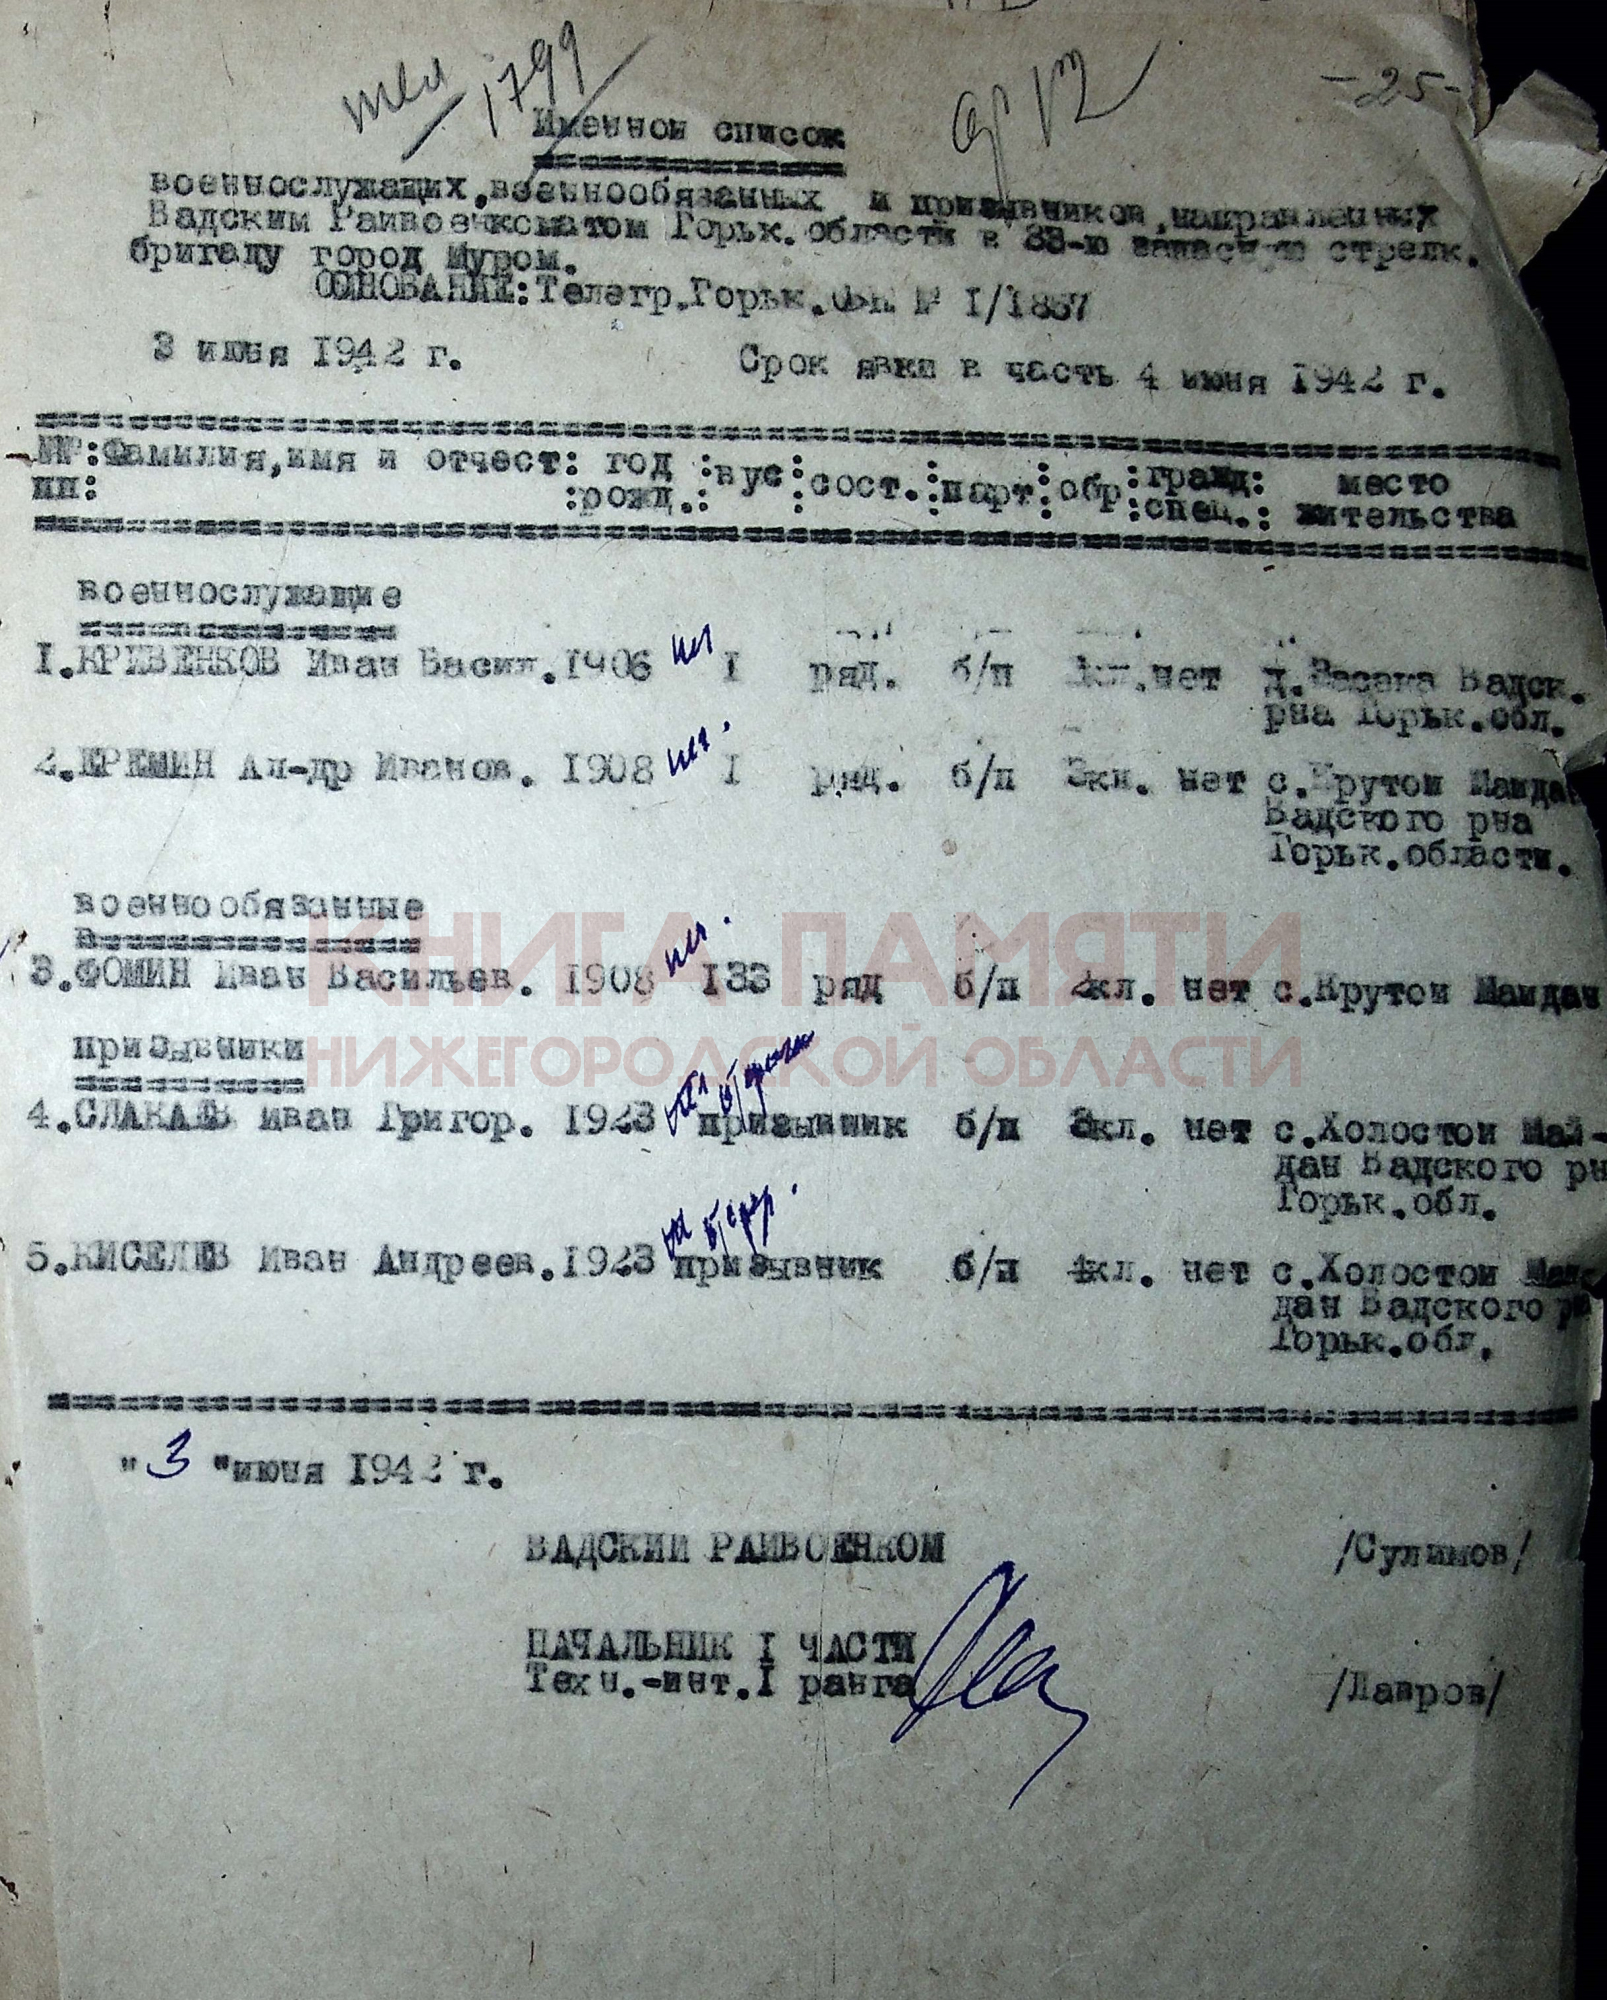 1799
-25-
Именной список
военнослужащих,военнообязанных и призывников,направленных
Вадским Райвоенкоматом Горьк.области в 33-ю запасную стрелк.
бригаду город Муром.
ОСНОВАНИЕ:Телегр.Горьк. № I/1857
3 июня 1942 г. Срок явки в часть 4 июня 1942 г.
№№:Фамилия,имя и отчест: год :вус:сост.:парт:обр:гражд: место
пп: :рожд.: :спец.: жительства
военнослужащие
1.КРИВЕНКОВ Иван Васил.1906 I ряд. б/п кл.нет д. Вадск.
рна Горьк.обл.
2.ЕРЕМИН Ал-др Иванов. 1908 I ряд. б/п 3кл. нет с.Крутой Майдан
Вадского рна
Горьк.области.
военнообязанные
3.ФОМИН Иван Васильев. 1908 133 ряд б/п 2кл. нет с.Крутой Майдан
КНИГА ПАМЯТИ
НИЖЕГОРОДСКОЙ ОБЛАСТИ
призывники
4.СЛАКАЕВ Иван Григор. 1923 призывник б/п 3кл. нет с.Холостой Май-
дан Вадского рн
Горьк.обл.
5.КИСЕЛЕВ Иван Андреев.1923 призывник б/п 4кл. нет с.Холостой Май
дан Вадского рн
Горьк.обл.
"3 "июня 1942 г.
ВАДСКИЙ РАЙВОЕНКОМ /Сулимов/
НАЧАЛЬНИК I ЧАСТИ
Техн.-инт.I ранга /Лавров/